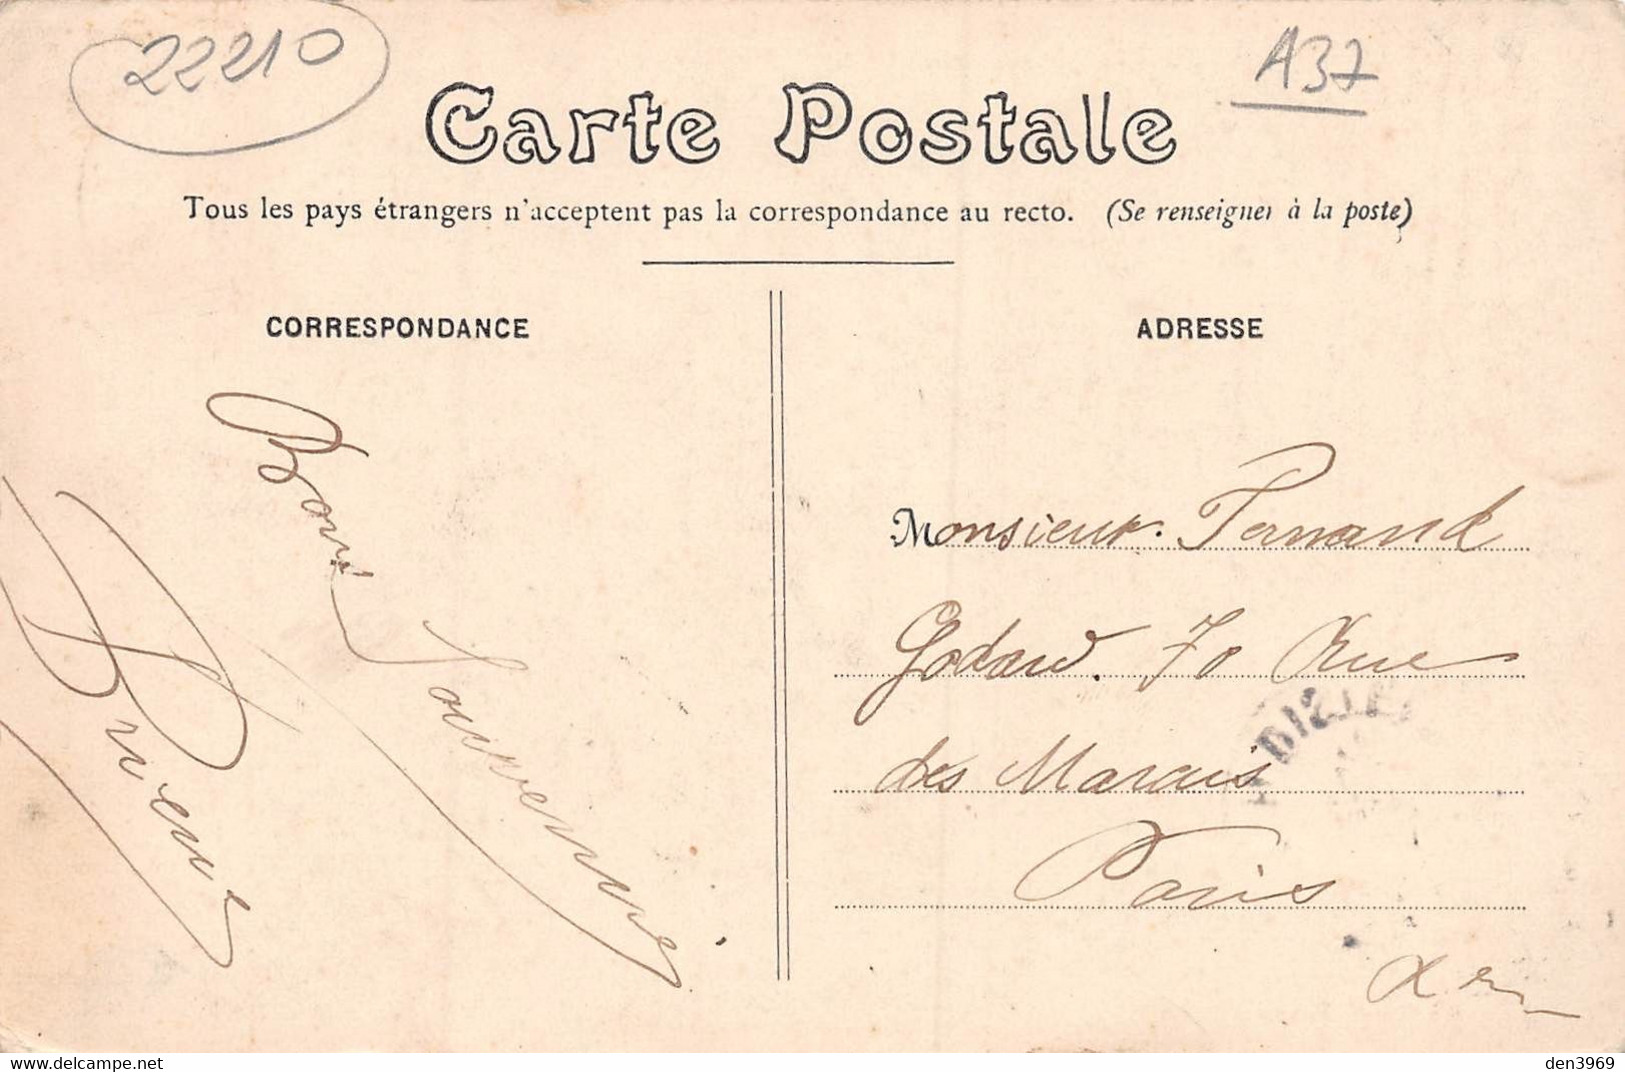 22210
A37
Carte Postale
Tous les pays étrangers n'acceptent pas la correspondance au recto. (Se renseigner à la poste)
CORRESPONDANCE
ADRESSE
Bons
Souvenirs
Prieur
Monsieur. Fernand
Godard. 70 Rue
des Marais
Paris
delcampe.net
den3969